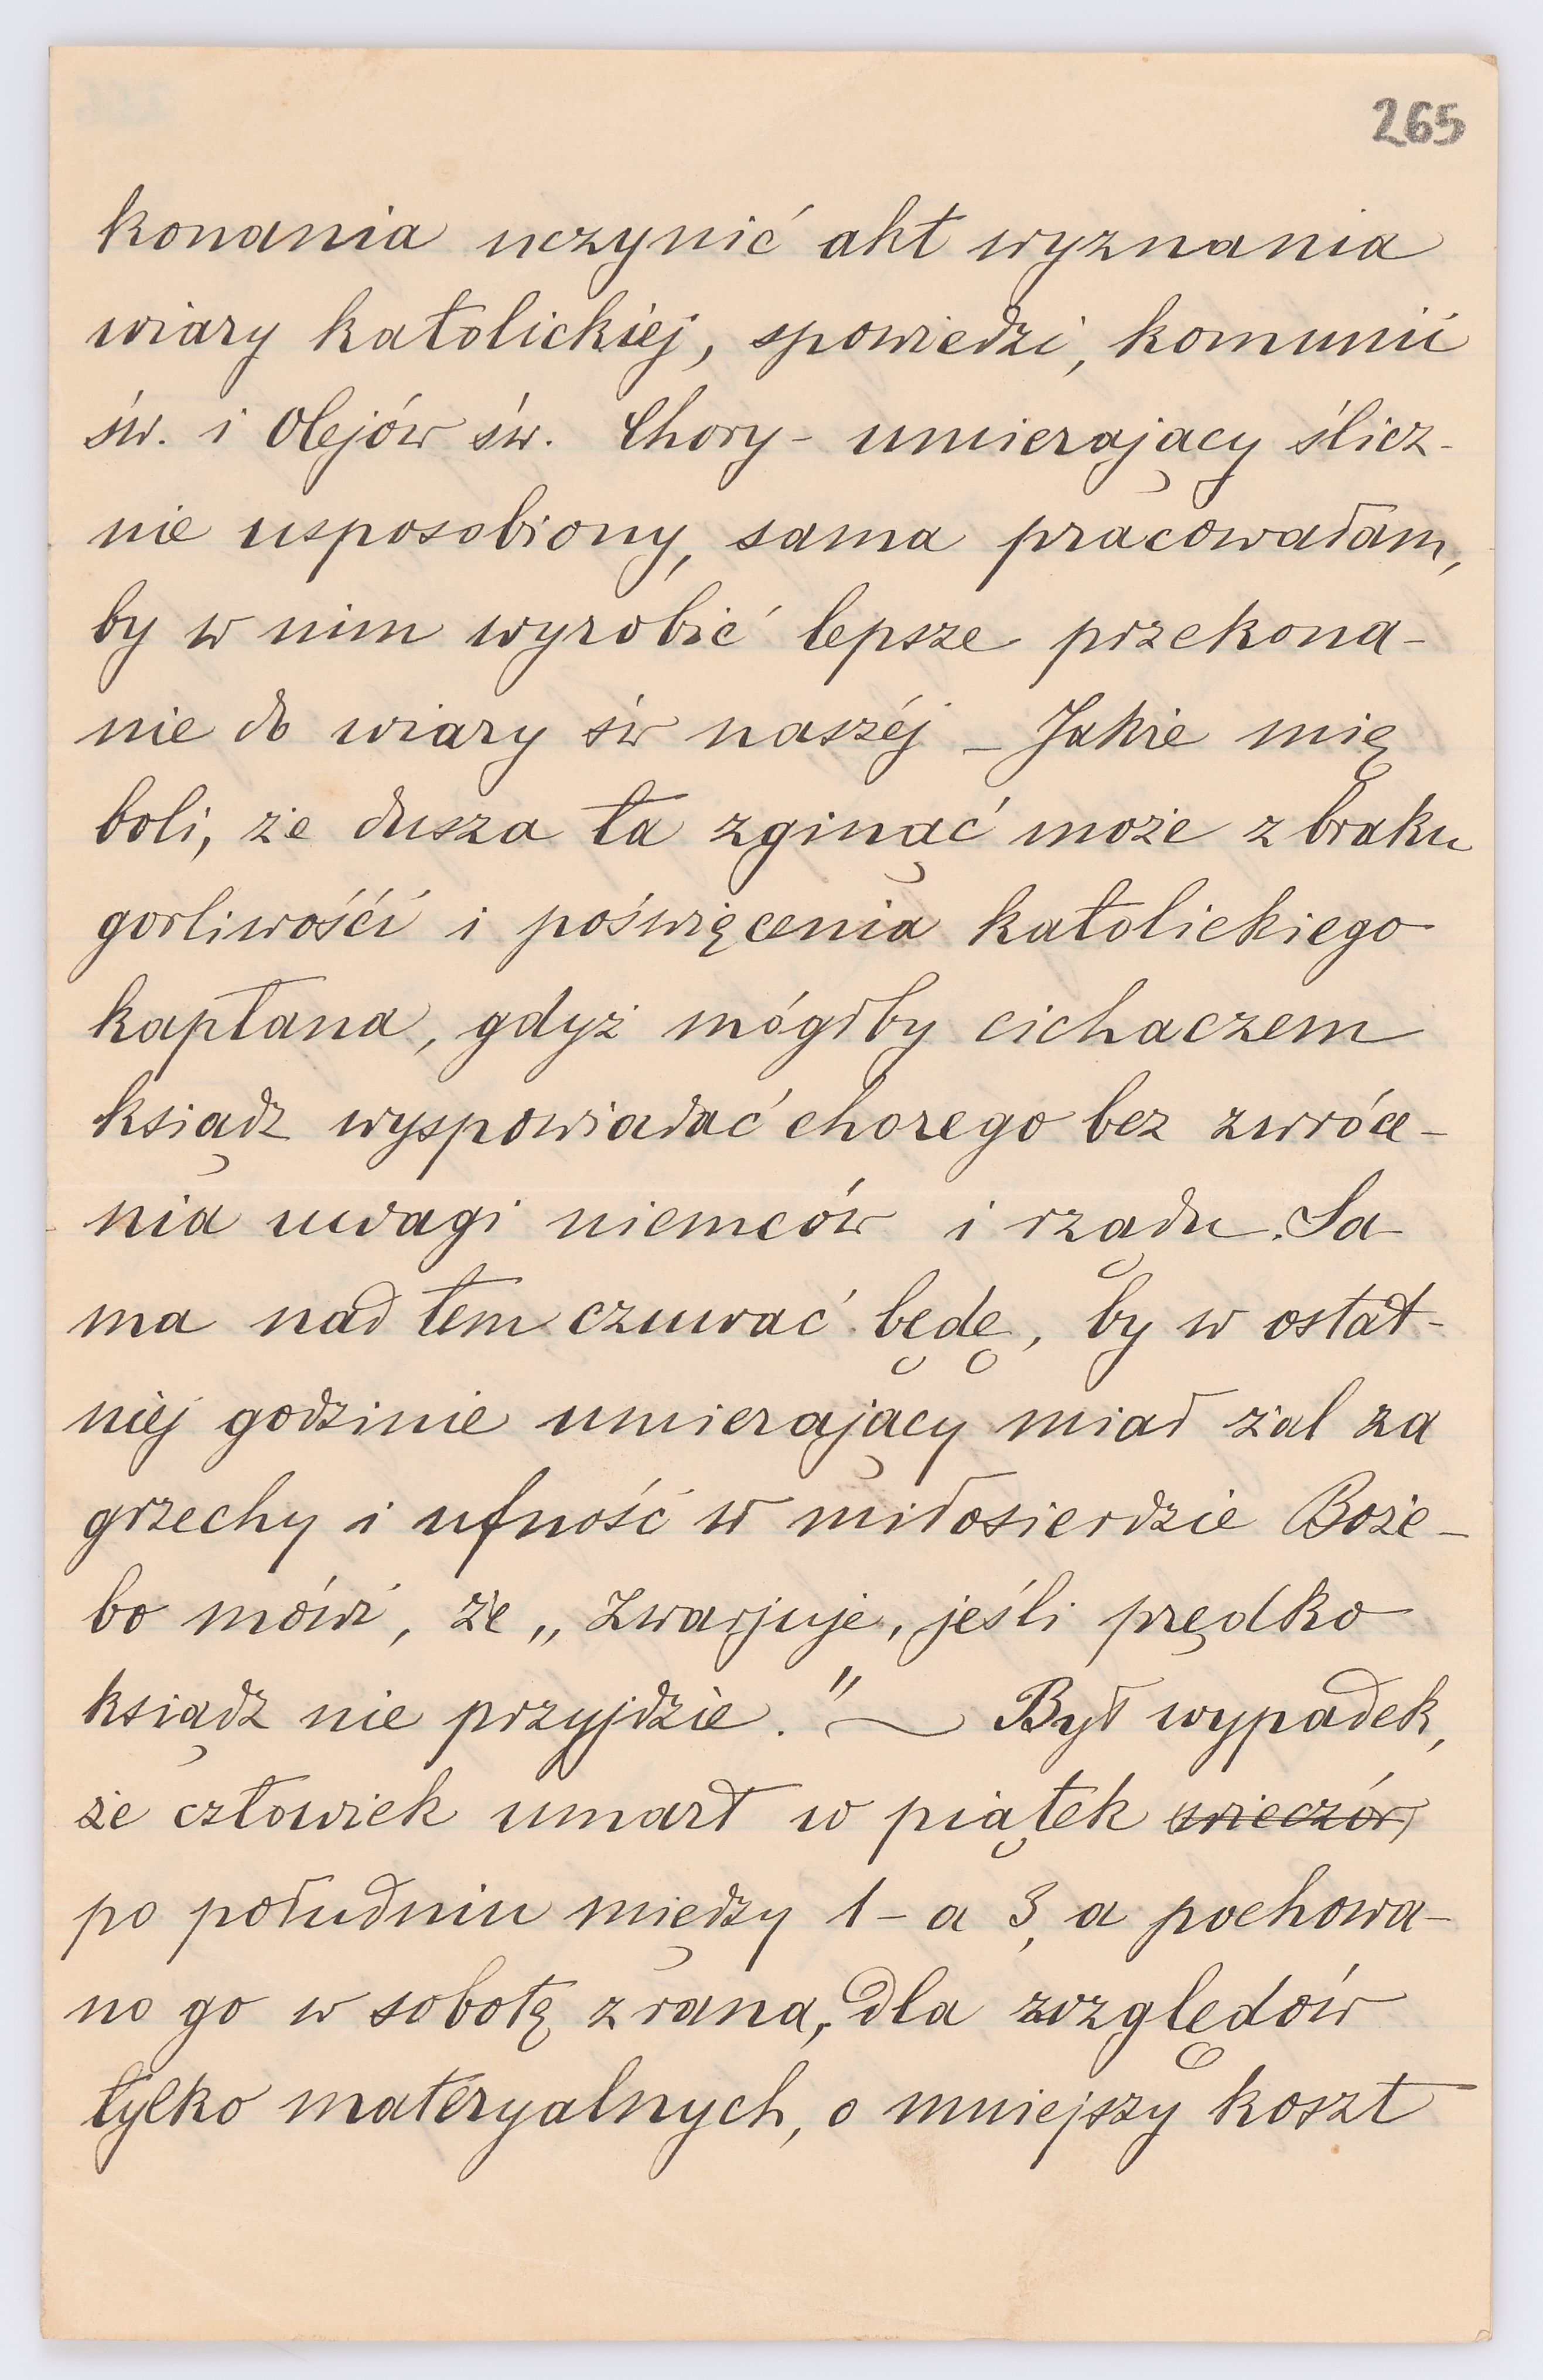 265
konania uczynić akt wyznania
wiary katolickiej, spowiedzi, komunii
św. i Olejów św. Chory - umierający ślicz-
nie usposobiony, sama pracowałam,
by w nim wyrobić lepsze przekona-
nie do wiary św naszéj - Jakże mię
boli, że dusza ta zginąć może z braku
gorliwości i poświęcenia katolickiego
kapłana, gdyż mógłby cichaczem
ksiądz wyspowiadać chorego bez zwróce-
nia uwagi niemców i rządu. Sa
ma nad tem czuwać będę, by w ostat-
niej godzinie umierający miał żal za
grzechy i ufność w miłosierdzie Boże -
bo mówi, że „zwarjuje, jeśli prędko
ksiądz nie przyjdzie." ~ Był wypadek,
że człowiek umarł w piątek wieczór,
po południu między 1 - a 3, a pochowa-
no go w sobotę z rana, dla względów
tylko materyalnych, o mniejszy koszt